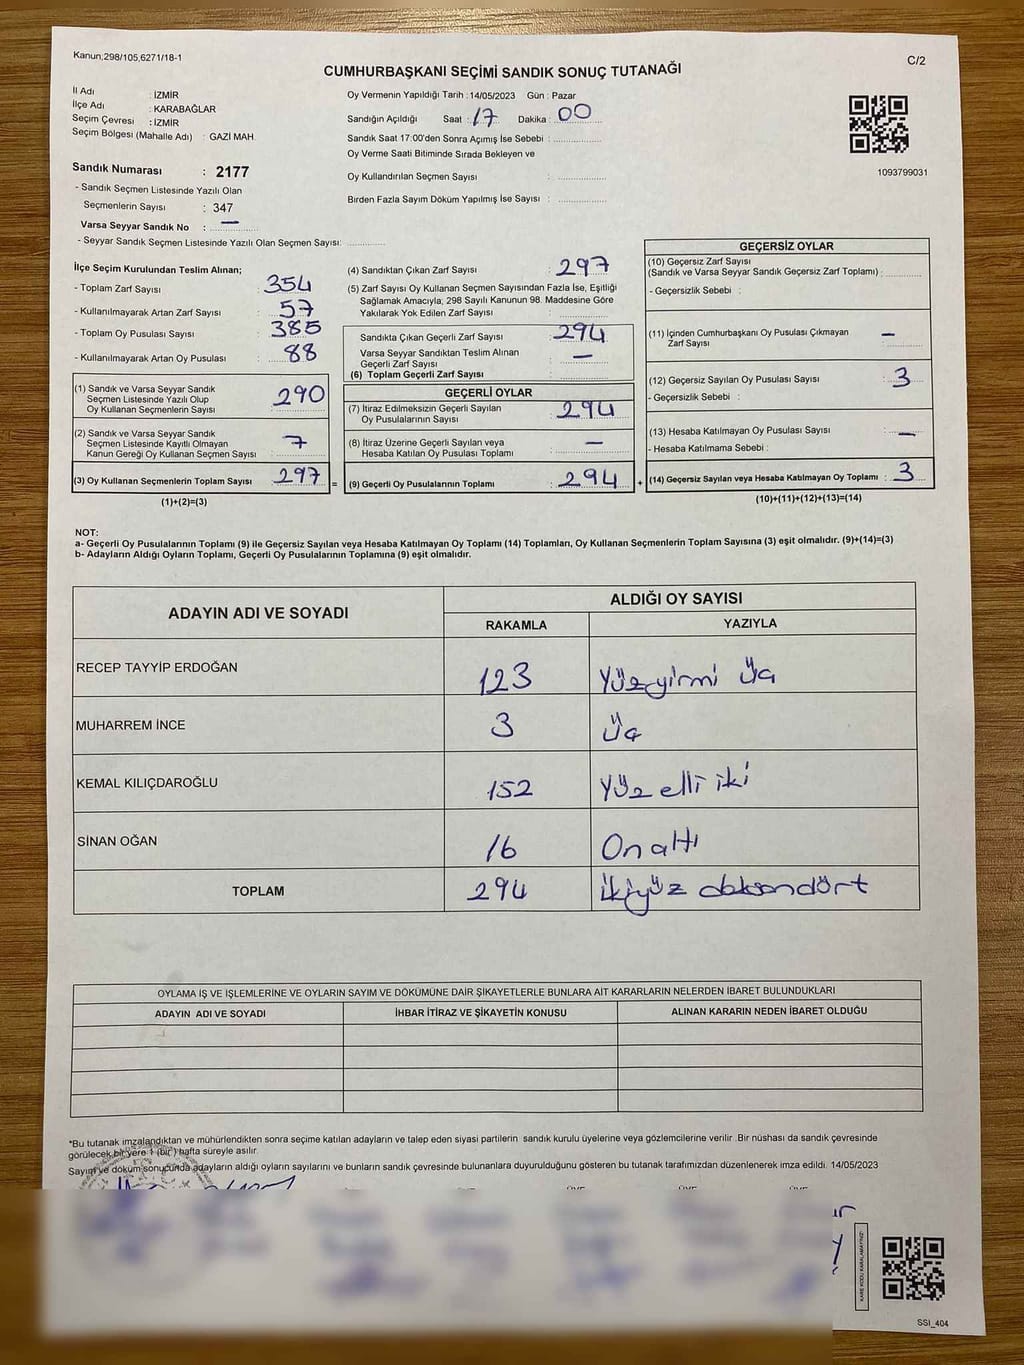 Kanun;298/105,6271/18-1
C/2
CUMHURBAŞKANI SEÇİMİ SANDIK SONUÇ TUTANAĞI
İl Adı : İZMİR
İlçe Adı : KARABAĞLAR
Seçim Çevresi : İZMİR
Seçim Bölgesi (Mahalle Adı) : GAZİ MAH.
Oy Vermenin Yapıldığı Tarih :14/05/2023 Gün : Pazar
Sandığın Açıldığı Saat : 17 Dakika : 00
Sandık Saat 17:00'den Sonra Açımış İse Sebebi :
Oy Verme Saati Bitiminde Sırada Bekleyen ve
Oy Kullandırılan Seçmen Sayısı :
Birden Fazla Sayım Döküm Yapılmış İse Sayısı :
1093799031
Sandık Numarası : 2177
- Sandık Seçmen Listesinde Yazılı Olan
Seçmenlerin Sayısı : 347
Varsa Seyyar Sandık No : —
- Seyyar Sandık Seçmen Listesinde Yazılı Olan Seçmen Sayısı:
İlçe Seçim Kurulundan Teslim Alınan;
- Toplam Zarf Sayısı : 354
- Kullanılmayarak Artan Zarf Sayısı : 57
- Toplam Oy Pusulası Sayısı : 385
- Kullanılmayarak Artan Oy Pusulası : 88
(1) Sandık ve Varsa Seyyar Sandık
Seçmen Listesinde Yazılı Olup
Oy Kullanan Seçmenlerin Sayısı : 290
(2) Sandık ve Varsa Seyyar Sandık
Seçmen Listesinde Kayıtlı Olmayan
Kanun Gereği Oy Kullanan Seçmen Sayısı : 7
(3) Oy Kullanan Seçmenlerin Toplam Sayısı : 297 =
(1)+(2)=(3)
(4) Sandıktan Çıkan Zarf Sayısı : 297
(5) Zarf Sayısı Oy Kullanan Seçmen Sayısından Fazla İse, Eşitliği
Sağlamak Amacıyla; 298 Sayılı Kanunun 98. Maddesine Göre
Yakılarak Yok Edilen Zarf Sayısı :
Sandıkta Çıkan Geçerli Zarf Sayısı : 294
Varsa Seyyar Sandıktan Teslim Alınan
Geçerli Zarf Sayısı : —
(6) Toplam Geçerli Zarf Sayısı :
GEÇERLİ OYLAR
(7) İtiraz Edilmeksizin Geçerli Sayılan
Oy Pusulalarının Sayısı : 294
(8) İtiraz Üzerine Geçerli Sayılan veya
Hesaba Katılan Oy Pusulası Toplamı : —
(9) Geçerli Oy Pusulalarının Toplamı : 294 +
GEÇERSİZ OYLAR
(10) Geçersiz Zarf Sayısı
(Sandık ve Varsa Seyyar Sandık Geçersiz Zarf Toplamı) :
- Geçersizlik Sebebi :
(11) İçinden Cumhurbaşkanı Oy Pusulası Çıkmayan
Zarf Sayısı : —
(12) Geçersiz Sayılan Oy Pusulası Sayısı : 3
- Geçersizlik Sebebi :
(13) Hesaba Katılmayan Oy Pusulası Sayısı : —
- Hesaba Katılmama Sebebi :
(14) Geçersiz Sayılan veya Hesaba Katılmayan Oy Toplamı : 3
(10)+(11)+(12)+(13)=(14)
NOT:
a- Geçerli Oy Pusulalarının Toplamı (9) ile Geçersiz Sayılan veya Hesaba Katılmayan Oy Toplamı (14) Toplamları, Oy Kullanan Seçmenlerin Toplam Sayısına (3) eşit olmalıdır. (9)+(14)=(3)
b- Adayların Aldığı Oyların Toplamı, Geçerli Oy Pusulalarının Toplamına (9) eşit olmalıdır.
ADAYIN ADI VE SOYADI
ALDIĞI OY SAYISI
RAKAMLA YAZIYLA
RECEP TAYYİP ERDOĞAN 123 Yüzyirmi üç
MUHARREM İNCE 3 üç
KEMAL KILIÇDAROĞLU 152 Yüz elli iki
SİNAN OĞAN 16 On altı
TOPLAM 294 ikiyüz doksandört
OYLAMA İŞ VE İŞLEMLERİNE VE OYLARIN SAYIM VE DÖKÜMÜNE DAİR ŞİKAYETLERLE BUNLARA AİT KARARLARIN NELERDEN İBARET BULUNDUKLARI
ADAYIN ADI VE SOYADI İHBAR İTİRAZ VE ŞİKAYETİN KONUSU ALINAN KARARIN NEDEN İBARET OLDUĞU
*Bu tutanak imzalandıktan ve mühürlendikten sonra seçime katılan adayların ve talep eden siyasi partilerin sandık kurulu üyelerine veya gözlemcilerine verilir .Bir nüshası da sandık çevresinde
görülecek bir yere 1 (bir ) hafta süreyle asılır.
Sayım ve döküm sonucunda adayların aldığı oyların sayılarını ve bunların sandık çevresinde bulunanlara duyurulduğunu gösteren bu tutanak tarafımızdan düzenlenerek imza edildi. 14/05/2023
KARE KODU KARALAMAYINIZ!
SSI_404